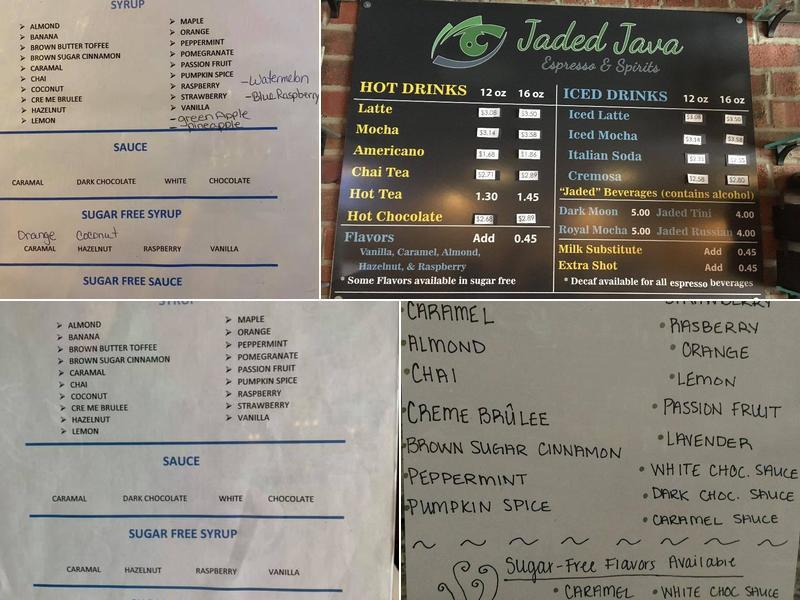 SYRUP
➢ ALMOND
➢ BANANA
➢ BROWN BUTTER TOFFEE
➢ BROWN SUGAR CINNAMON
➢ CARAMAL
➢ CHAI
➢ COCONUT
➢ CRE ME BRULEE
➢ HAZELNUT
➢ LEMON
➢ MAPLE
➢ ORANGE
➢ PEPPERMINT
➢ POMEGRANATE
➢ PASSION FRUIT
➢ PUMPKIN SPICE
➢ RASPBERRY
➢ STRAWBERRY
➢ VANILLA
- Watermelon
- Blue Raspberry
- green Apple
- pineapple
SAUCE
CARAMAL DARK CHOCOLATE WHITE CHOCOLATE
SUGAR FREE SYRUP
Orange Coconut
CARAMAL HAZELNUT RASPBERRY VANILLA
SUGAR FREE SAUCE
Jaded Java
Espresso & Spirits
HOT DRINKS 12 oz 16 oz
Latte $3.08 $3.50
Mocha $3.14 $3.58
Americano $1.68 $1.86
Chai Tea $2.71 $2.89
Hot Tea 1.30 1.45
Hot Chocolate $2.68 $2.89
Flavors Add 0.45
Vanilla, Caramel, Almond,
Hazelnut, & Raspberry
* Some Flavors available in sugar free
ICED DRINKS 12 oz 16 oz
Iced Latte $3.08 $3.50
Iced Mocha $3.14 $3.58
Italian Soda
Cremosa $2.58 $2.80
"Jaded" Beverages (contains alcohol)
Dark Moon 5.00 Jaded Tini 4.00
Royal Mocha 5.00 Jaded Russian 4.00
Milk Substitute Add 0.45
Extra Shot Add 0.45
* Decaf available for all espresso beverages
SYRUP
➢ ALMOND
➢ BANANA
➢ BROWN BUTTER TOFFEE
➢ BROWN SUGAR CINNAMON
➢ CARAMAL
➢ CHAI
➢ COCONUT
➢ CRE ME BRULEE
➢ HAZELNUT
➢ LEMON
➢ MAPLE
➢ ORANGE
➢ PEPPERMINT
➢ POMEGRANATE
➢ PASSION FRUIT
➢ PUMPKIN SPICE
➢ RASPBERRY
➢ STRAWBERRY
➢ VANILLA
SAUCE
CARAMAL DARK CHOCOLATE WHITE CHOCOLATE
SUGAR FREE SYRUP
CARAMAL HAZELNUT RASPBERRY VANILLA
• CARAMEL
• ALMOND
• CHAI
• CREME BRÛLEE
• BROWN SUGAR CINNAMON
• PEPPERMINT
• PUMPKIN SPICE
STRAWBERRY
• RASBERRY
• ORANGE
• LEMON
• PASSION FRUIT
• LAVENDER
• WHITE CHOC. SAUCE
• DARK CHOC. SAUCE
• CARAMEL SAUCE
Sugar-Free Flavors Available
• CARAMEL • WHITE CHOC SAUCE